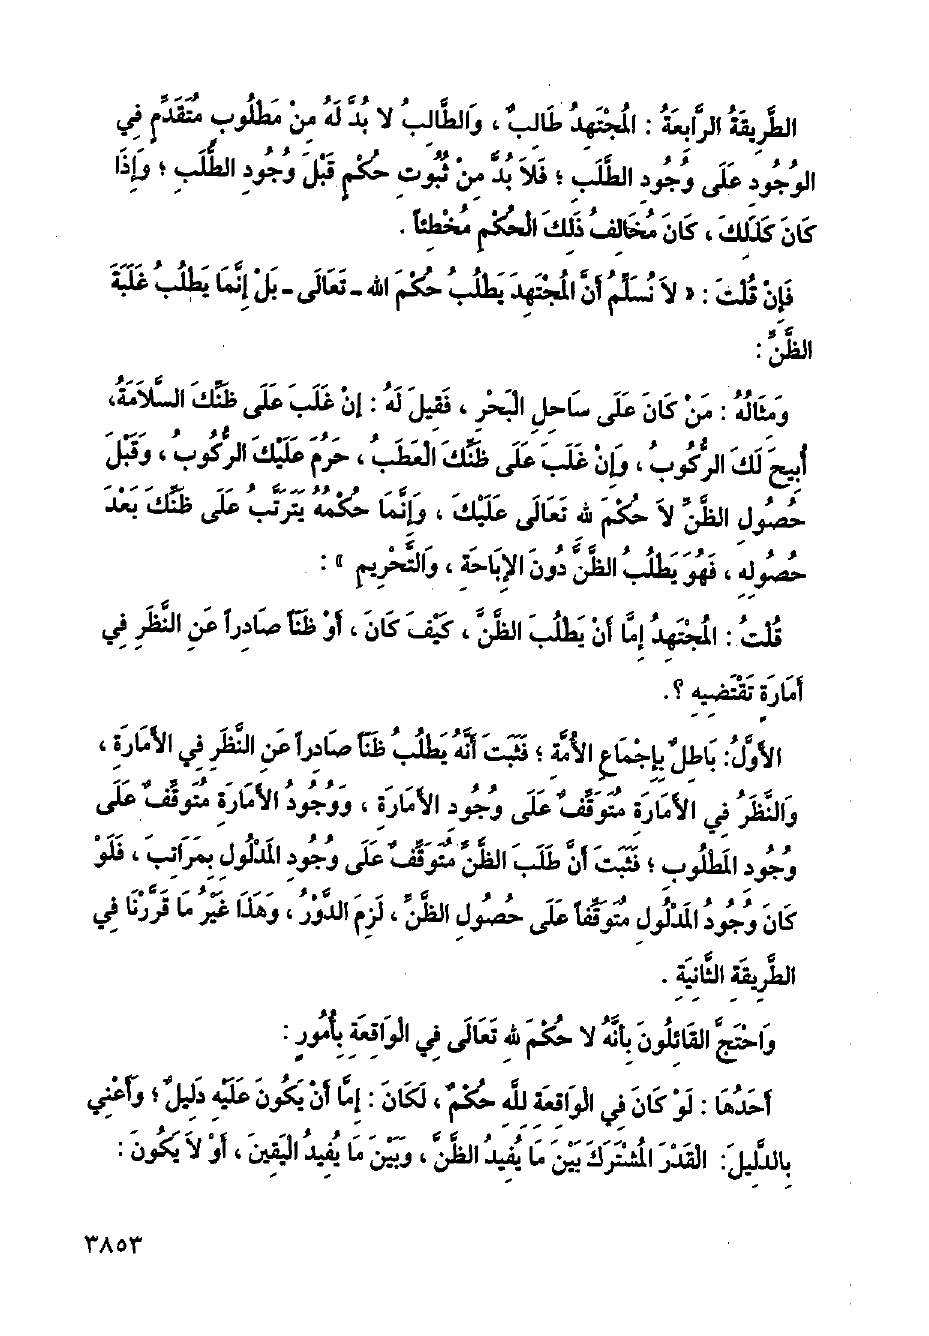 الطَّرِيقَةُ الرَّابِعَةُ : المُجْتَهِدُ طَالِبٌ ، وَالطَّالِبُ لا بُدَّ لَهُ مِنْ مَطْلُوبٍ مُتَقَدِّمٍ فِي
الوُجُودِ عَلَى وُجُودِ الطَّلَبِ ؛ فَلاَ بُدَّ مِنْ ثُبُوتِ حُكْمٍ قَبْلَ وُجُودِ الطَّلَبِ ؛ وَإِذَا
كَانَ كَذَلِكَ ، كَانَ مُخَالِفُ ذَلِكَ الْحُكْمِ مُخْطِئاً .
فَإِنْ قُلْتَ : « لاَ نُسَلِّمُ أَنَّ المُجْتَهِدَ يَطْلُبُ حُكْمَ الله ـ تَعَالَى ـ بَلْ إِنَّمَا يَطْلُبُ غَلَبَةَ
الظَّنِّ :
وَمِثَالُهُ : مَنْ كَانَ عَلَى سَاحِلِ الْبَحْرِ ، فَقِيلَ لَهُ : إِنْ غَلَبَ عَلَى ظَنِّكَ السَّلاَمَةُ،
أُبِيحَ لَكَ الرُّكُوبُ ، وَإِنْ غَلَبَ عَلَى ظَنِّكَ الْعَطَبُ ، حَرُمَ عَلَيْكَ الرُّكُوبُ ، وَقَبْلَ
حُصُولِ الظَّنِّ لاَ حُكْمَ لله تَعَالَى عَلَيْكَ ، وَإِنَّمَا حُكْمُهُ يَتَرَتَّبُ عَلَى ظَنِّكَ بَعْدَ
حُصُولِهِ ، فَهُوَ يَطْلُبُ الظَّنَّ دُونَ الإِبَاحَةِ ، وَالتَّحْرِيمِ » :
قُلْتُ : المُجْتَهِدُ إِمَّا أَنْ يَطْلُبَ الظَّنَّ ، كَيْفَ كَانَ ، أَوْ ظَنّاً صَادِراً عَنِ النَّظَرِ فِي
أَمَارَةٍ تَقْتَضِيهِ ؟.
الأَوَّلُ: بَاطِلٌ بِإِجْمَاعِ الأُمَّةِ ؛ فَثَبَتَ أَنَّهُ يَطْلُبُ ظَنّاً صَادِراً عَنِ النَّظَرِ فِي الأَمَارَةِ ،
وَالنَّظَرُ فِي الأَمَارَةِ مُتَوَقِّفٌ عَلَى وُجُودِ الأَمَارَةِ ، وَوُجُودُ الأَمَارَةِ مُتَوَقِّفٌ عَلَى
وُجُودِ المَطْلُوبِ ؛ فَثَبَتَ أَنَّ طَلَبَ الظَّنِّ مُتَوَقِّفٌ عَلَى وُجُودِ المَدْلُولِ بِمَرَاتِبَ ، فَلَوْ
كَانَ وُجُودُ المَدْلُولِ مُتَوَقِّفاً عَلَى حُصُولِ الظَّنِّ ، لَزِمَ الدَّوْرُ ، وَهَذَا غَيْرُ مَا قَرَّرْنَا فِي
الطَّرِيقَةِ الثَّانِيَةِ .
وَاحْتَجَّ القَائِلُونَ بِأَنَّهُ لا حُكْمَ لله تَعَالَى فِي الْوَاقِعَةِ بِأُمُورٍ :
أَحَدُهَا : لَوْ كَانَ فِي الْوَاقِعَةِ للهِ حُكْمٌ ، لَكَانَ : إِمَّا أَنْ يَكُونَ عَلَيْهِ دَلِيلٌ ؛ وَأَعْنِي
بِالدَّلِيلِ: القَدْرَ المُشْتَرَكَ بَيْنَ مَا يُفِيدُ الظَّنَّ ، وَبَيْنَ مَا يُفِيدُ الْيَقِينَ ، أَوْ لاَ يَكُونَ :
٣٨٥٣